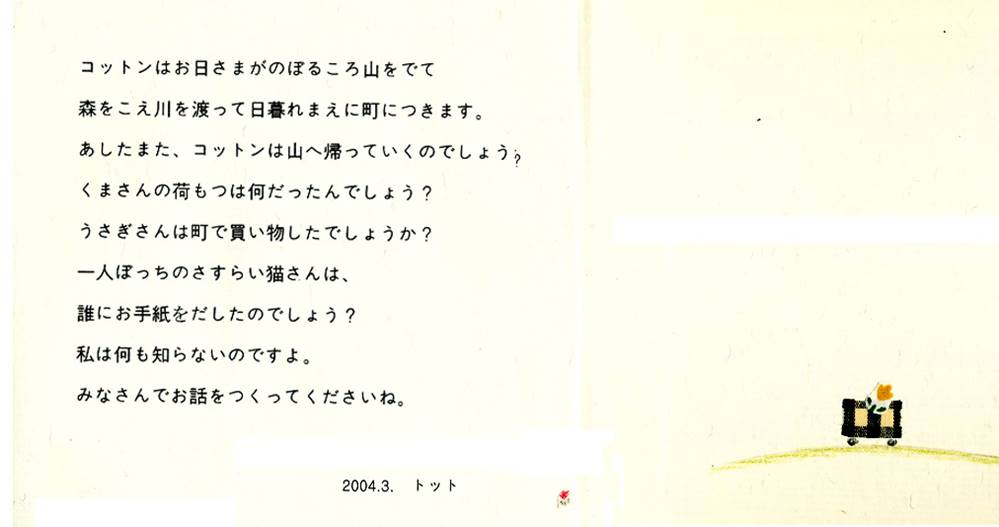 コットンはお日さまがのぼるころ山をでて
森をこえ川を渡って日暮れまえに町につきます。
あしたまた、コットンは山へ帰っていくのでしょう?
くまさんの荷もつは何だったんでしょう？
うさぎさんは町で買い物したでしょうか？
一人ぼっちのさすらい猫さんは、
誰にお手紙をだしたのでしょう？
私は何も知らないのですよ。
みなさんでお話をつくってくださいね。
2004.3. トット